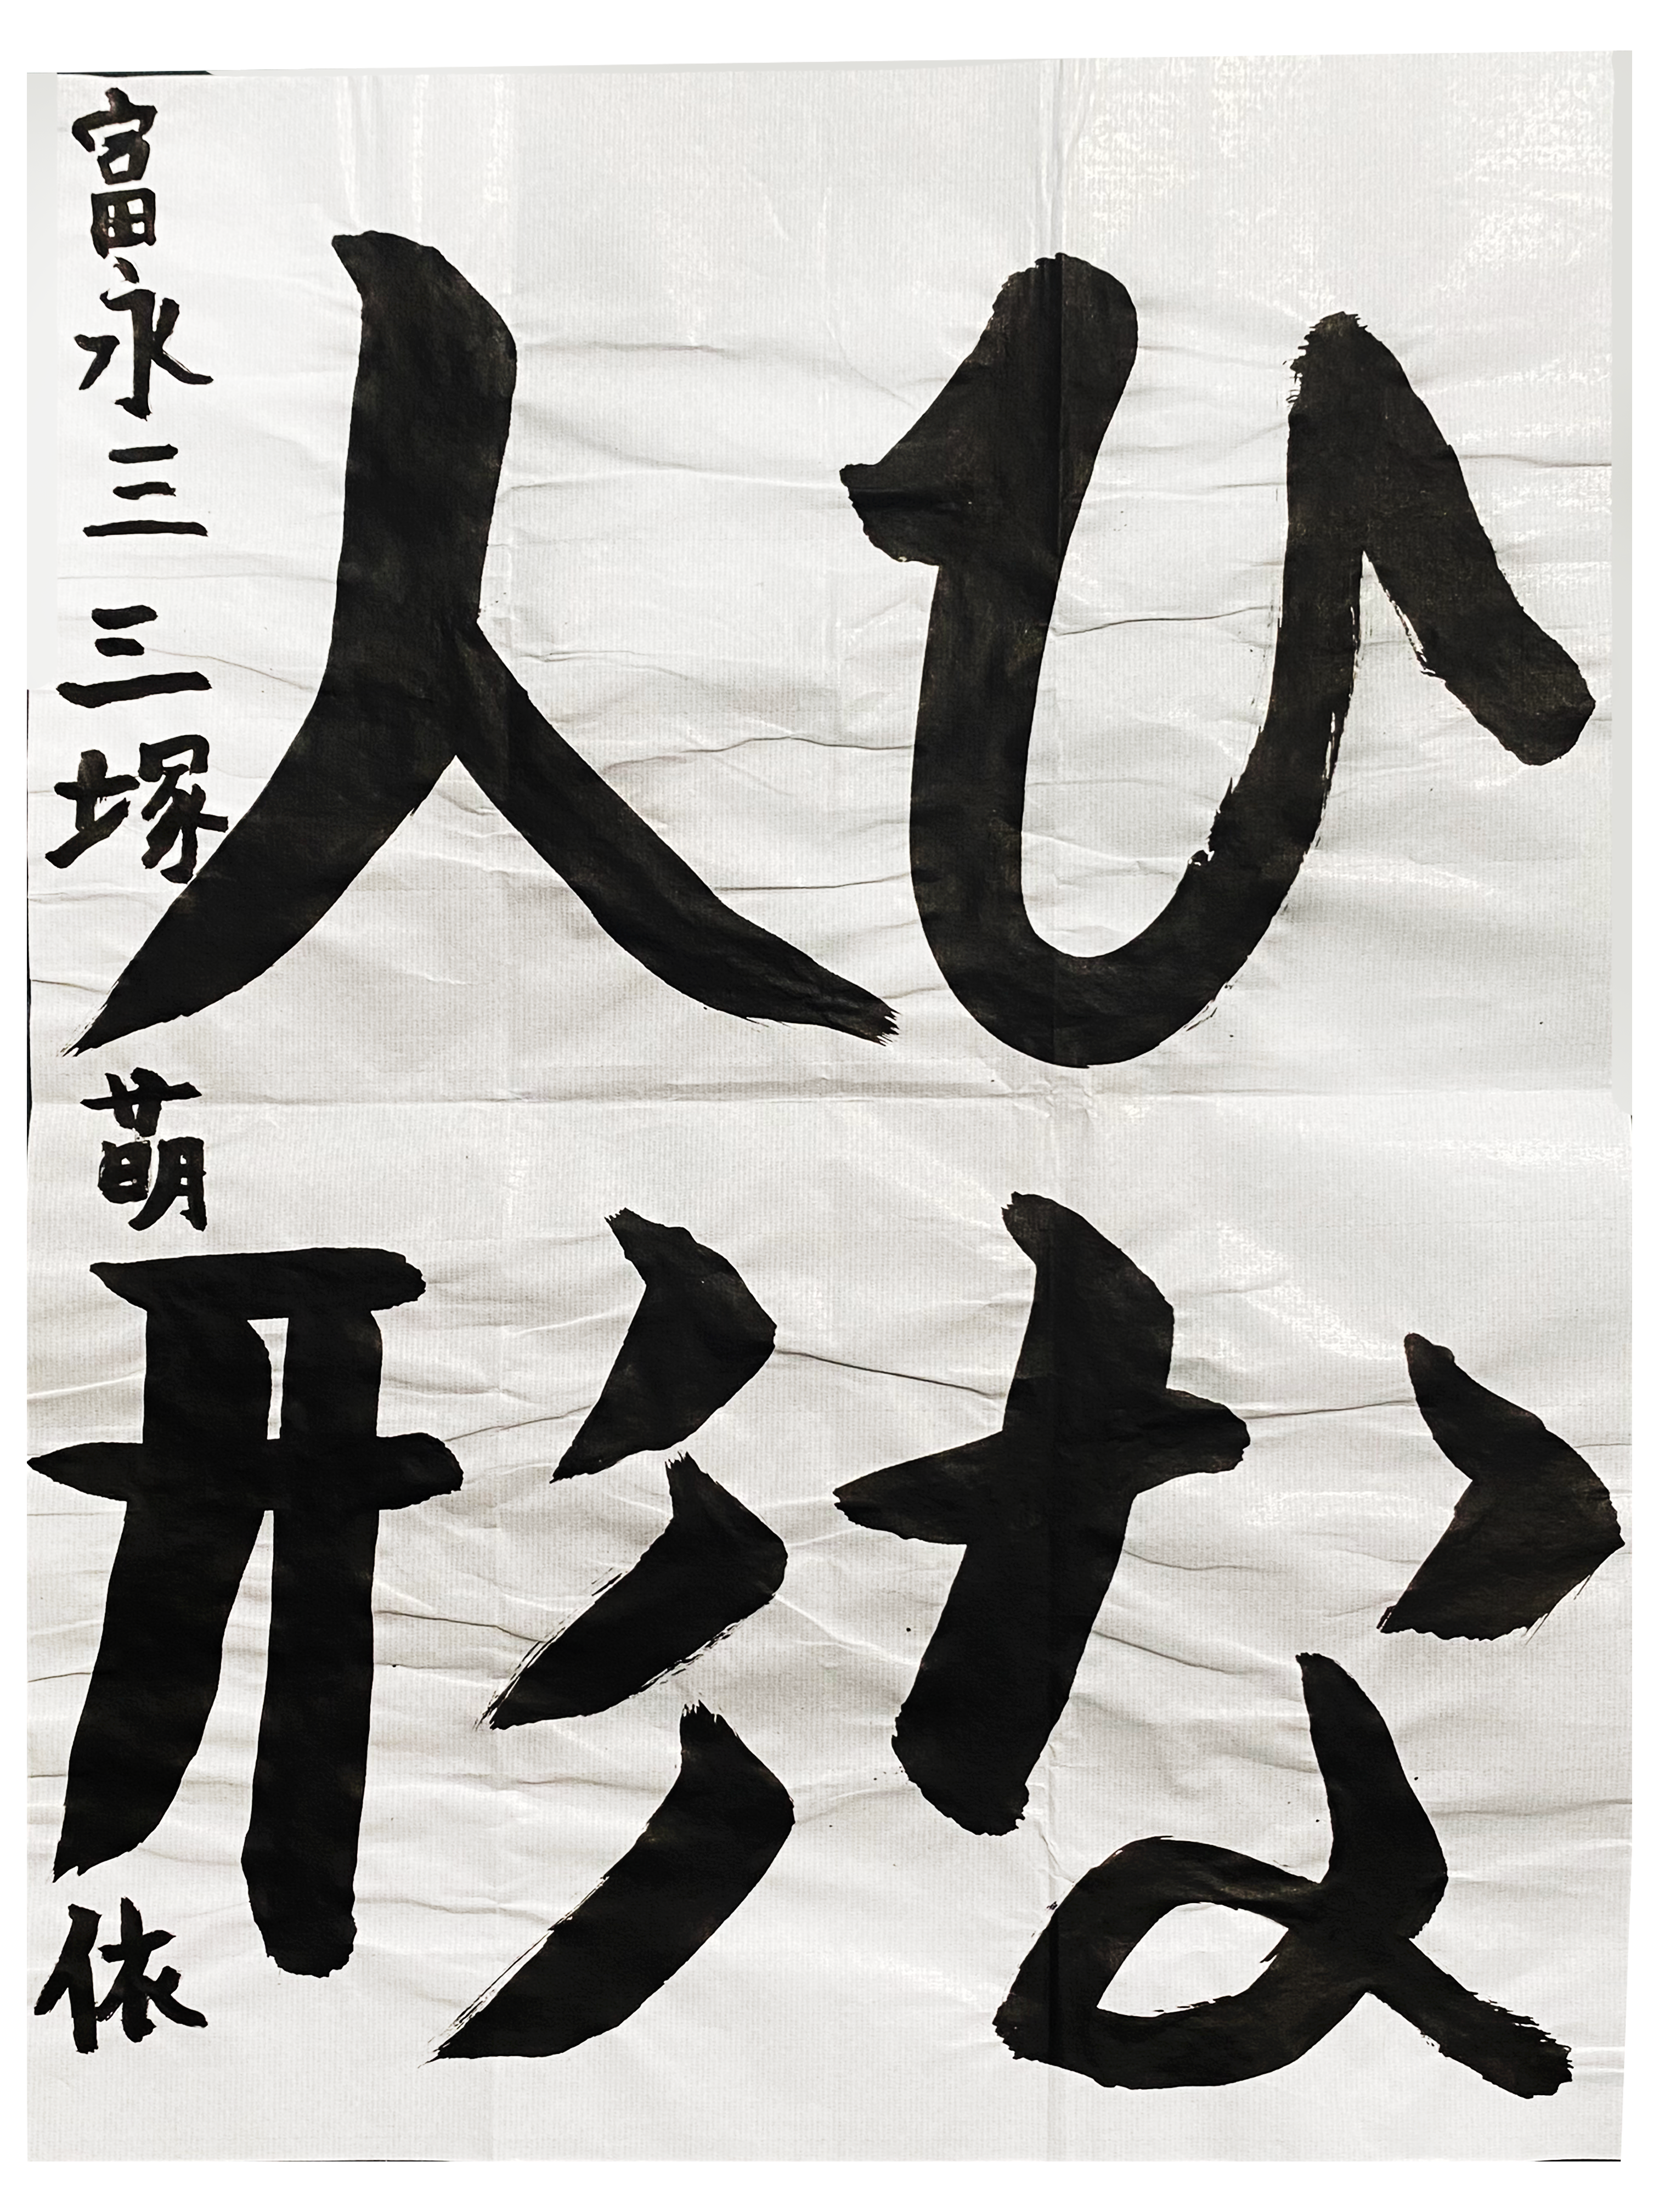 ひな
人形
富永三三塚萌依